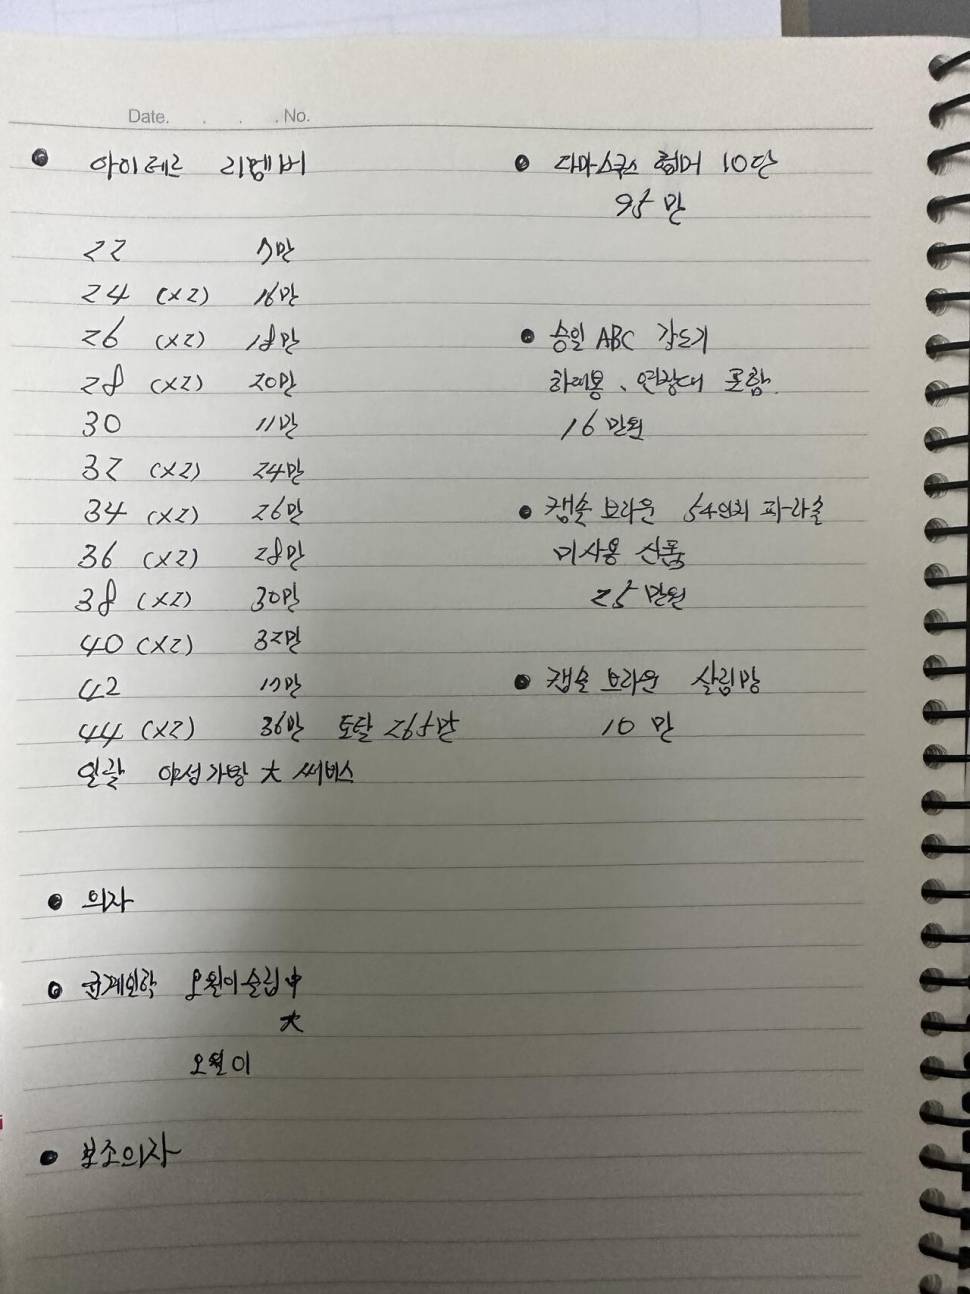 Date. . . . No.
● 아이레르 리멤버
22 7만
24 (x2) 16만
26 (x2) 18만
28 (x2) 20만
30 11만
32 (x2) 24만
34 (x2) 26만
36 (x2) 28만
38 (x2) 30만
40 (x2) 32만
42 17만
44 (x2) 36만 토탈 265만
일괄 야성가방 大 써비스
● 의자
● 군계일학 오월이슬립 中
大
오월이
● 보조의자
● 다마스쿠스 험머 10단
95만
● 승일 ABC 각도기
하례용、연장대 포함.
16만원
● 캡슐 브라운 54인치 파라솔
미사용 신품
25만원
● 캡슐 브라운 살림망
10만